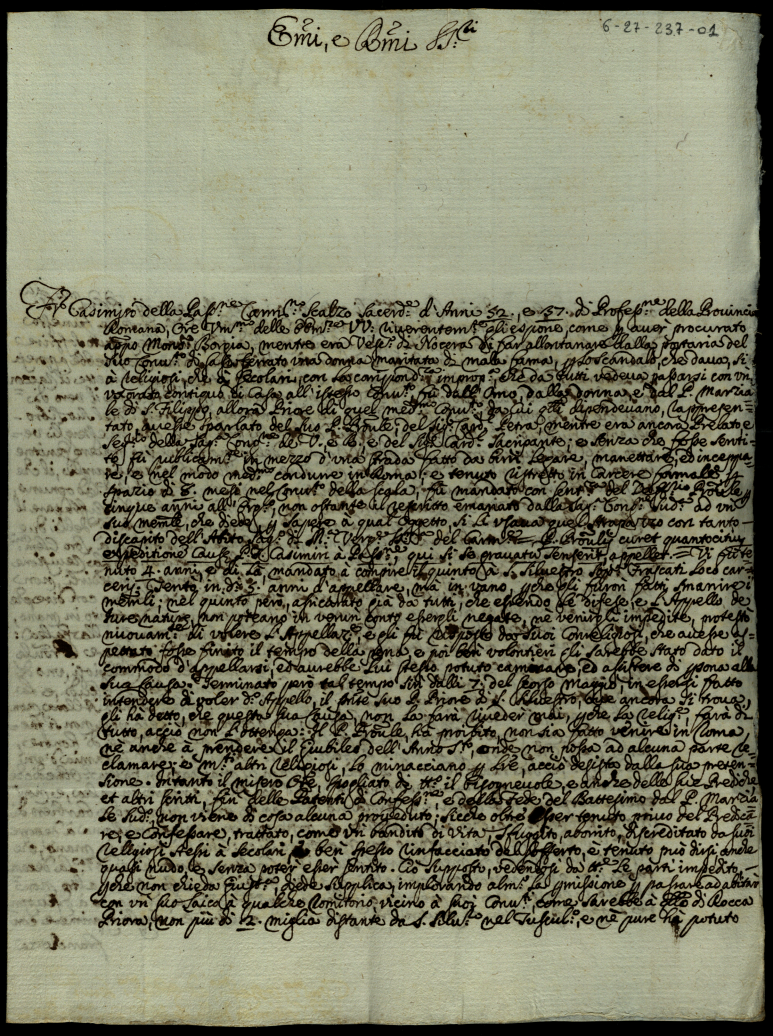 6-27-237-01
Em̃i, e Rm̃i SS.ri
Fr. Casimiro della Pass.ne Carmi.no Scalzo Sacerd.e d'Anni 52. e 37. di Profess.ne della Provincia
Romana, Ore Um.o delle EE. VV: riverentem.te gli espone, come p aver procurato
appo Mons. Borgia, mentre era Vesc.o di Nocera di far allontanare dalla portaria del
suo Conv.o di Sassoferrato una donna maritata di mala fama, p lo scandalo, che dava, sì
à religiosi, che à secolari, con la corrispond.za improp.a, che da tutti vedeva passarsi con un
contiguo di Casa all'istesso Conv.o, fù dall'Omo, dalla donna, e dal P. Marzia-
le di S. Filippo, allora Priore di quel med.mo Conv.o, da cui q.lli dipendevano, rappresen-
tato, avesse sparlato del suo P. Prõule; del Sig. Card. Petra, mentre era ancora Prelato e
Seg.rio della Sag. Cong.ne de V. e R. e del Sig. Card. Sacripante; e senza che fosse senti-
to, fù publicam.te in mezzo d'una strada fatto da birri legare, manettare, ed inceppa-
re, e nel modo med.mo condurre in Roma; e tenuto ristretto in Carcere formale p
spazio di 8. mesi nel Conv.o della Scala, fù mandato con sent.a del P. Prõule p
cinque anni all' non ostante il rescritto emanato dalla Sag. Cong. Sud.a ad un
suo memle, che diede p sapere à qual oggetto, si le usava quel strapazzo con tanto
discapito dell'Abito Sag.o di M.a Verg.e SS.ma del Carm.e = P. Prõulis curet quantocitius
expeditione Causæ P. Casimiri à Pass.ne, qui si se gravatu senserit, appellet = Vi fù te-
nuto 4. anni, e di là, mandato à compire il quinto à S. Silvestro sop.a Frascati Loco car-
ceris. Tentò in d.i 5. anni d'appellare, mà in vano, p che gli furon fatti smarrire i
memli; nel quinto però, assicurato già da tutti, che essendo le difese, e l'Appello de
iure naturæ, non poteano in verun conto essergli negate, ne venirgli impedite, protestò
nuovam.te di volere l'Appellaz.ne, e gli fù risposto da suoi Correligiosi, che avesse as-
pettato fosse finito il tempo della pena, e poi ben volontieri gli sarebbe stato dato il
commodo d'appellarsi, ed avrebbe lui stesso potuto caminare, ed assistere di psona alla
sua Causa. Terminato però tal tempo sin dalli 7. del scorso Maggio, in essersi fatto
intendere di voler d.o Appello, il pñte suo P. Priore di S. Silvestro, ove ancora si trova,
gli hà detto, che questa sua Causa, non la farà riveder mai, p che la Relig.e, farà di
tutto, acciò non l'ottenga: Il P. Prõule hà proibito, non sia fatto venire in Roma,
ne anche à prendere il Giubileo dell'Anno S.to, onde non possa ad alcuna parte re-
clamare; e m.ti altri religiosi lo minacciano p Lre, acciò desista dalla sua preten-
sione. Intanto il misero Ore, spogliato di tt.o il bisognevole, e anche della sue Prediche
et altri scritti, fin delle Patenti di Confess.re e della Fede del Battesimo dal P. Marzia-
le Sud.o, non viene di cosa alcuna proveduto; sicche oltre l'esser tenuto privo del Predica-
re, e Confessare, trattato, come un bandito di vita, sfuggito, aborrito, discreditato da suoi
religiosi stessi à secolari, e ben spesso rinfacciato del sofferto, e tenuto può dirsi anche
quasi nudo, e senza poter esser sentito. Ciò supposto, vedendosi da tt.e le parti impedito
p che non chieda Giust.a, diede supplica, implorando alm.o la pmissione p passare ad abitare
con un suo Laico à qualche Romitorio, vicino à suoi Conv.i, come sarebbe à q.llo di Rocca
Priora, non più di 2. miglia distante da S. Silv.o nel Tuscul.o, e nè pure hà potuto